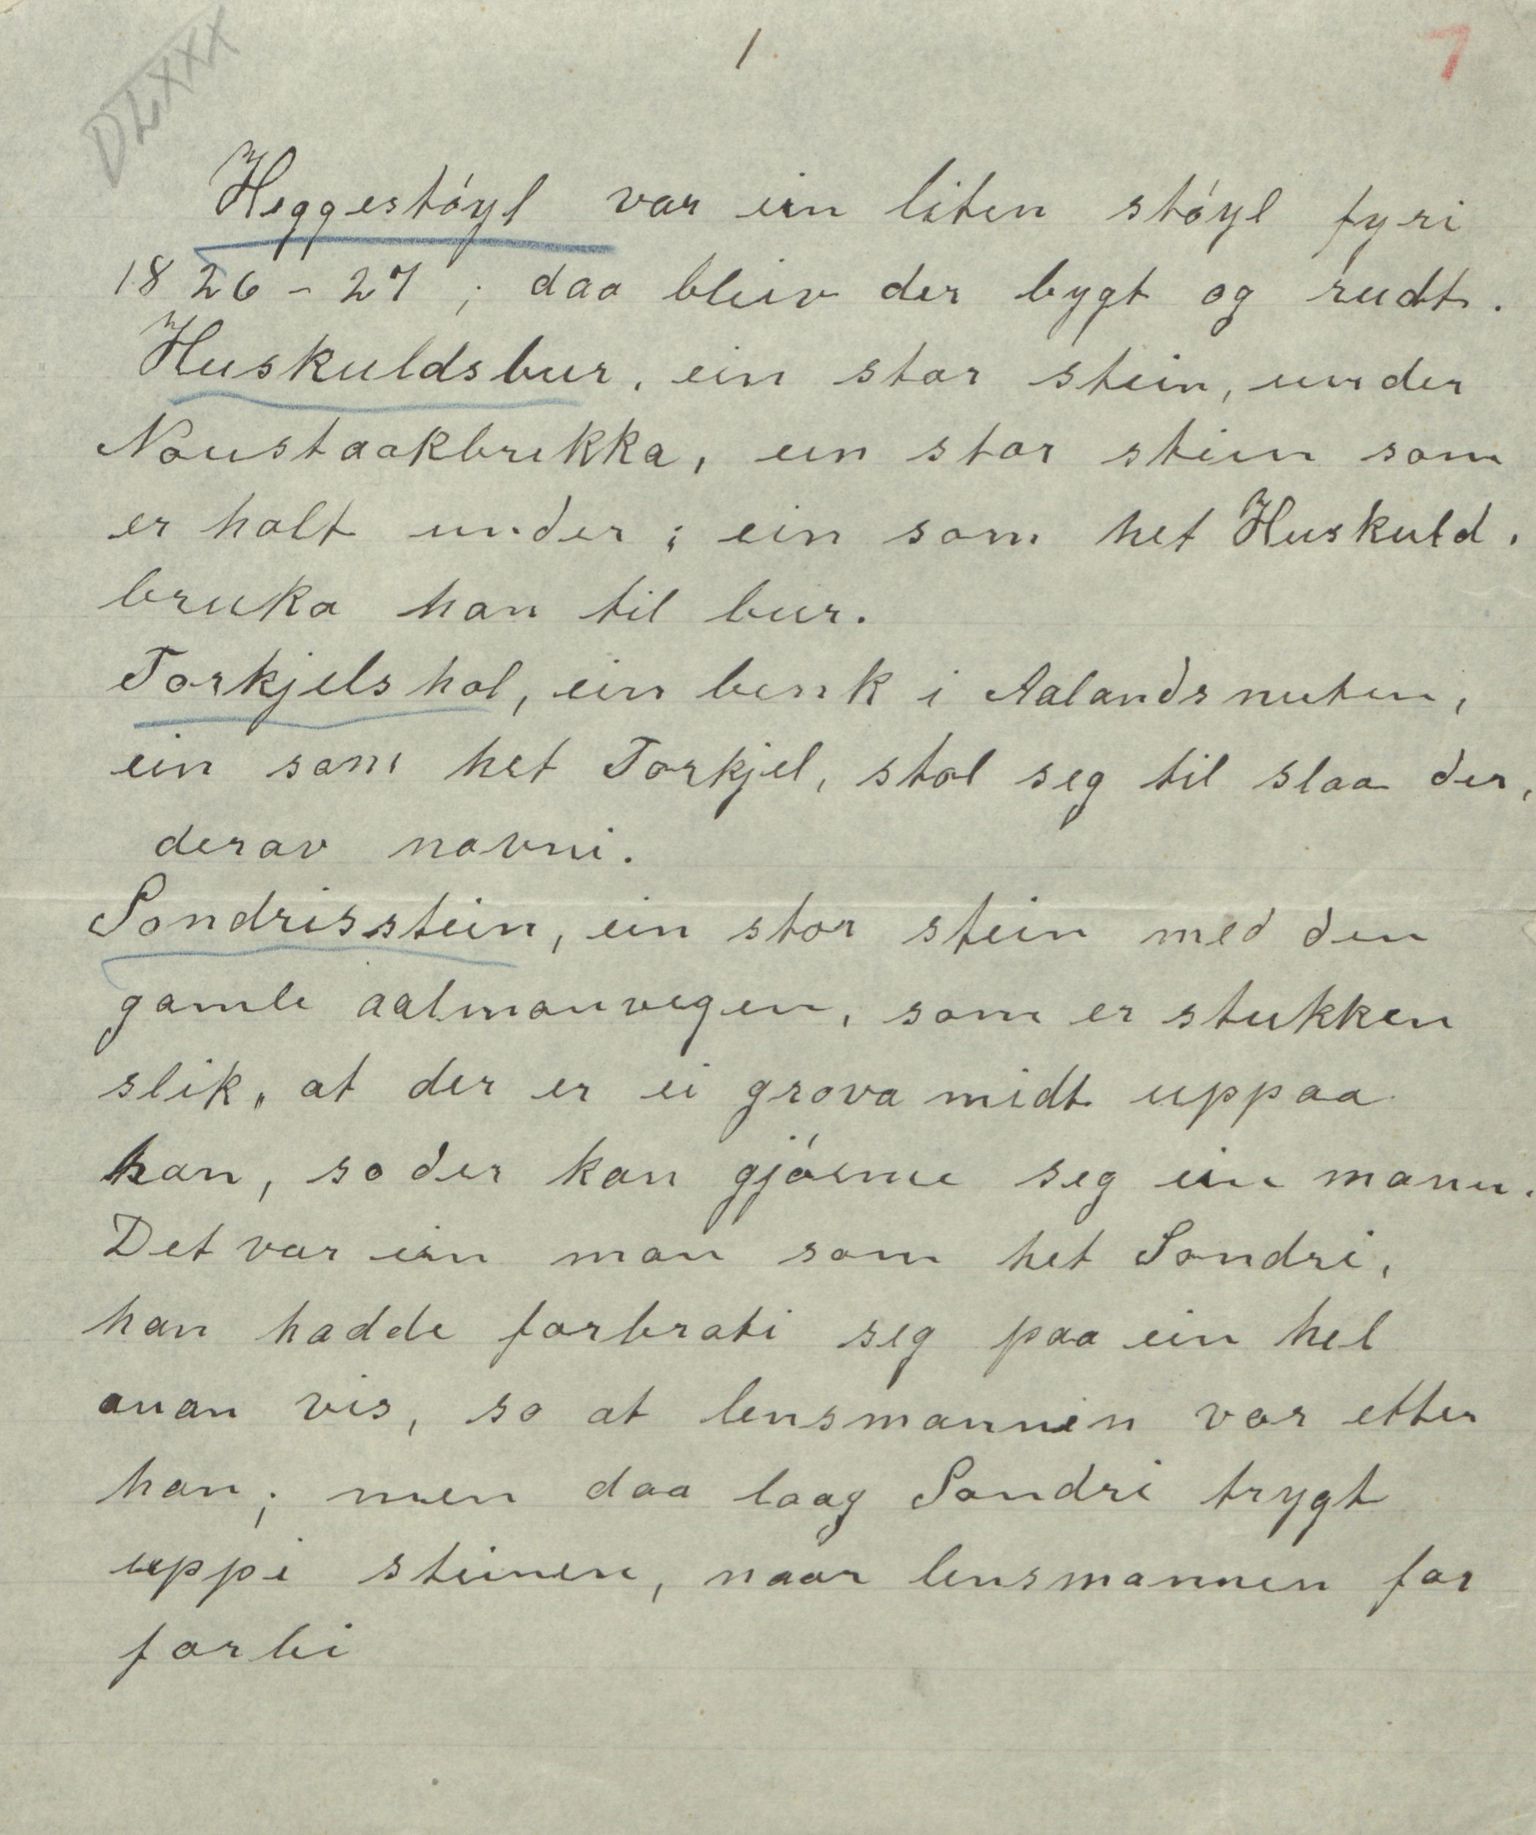 1
7
DLXXX
Heggestóyl var ein liten stóyl fyri
1826-27; daa bleiv der bygt og rudt.
Huskuldsbur, ein stor stein, under
Noustaakbrekka, ein stor stein som
er holt under; ein som het Huskuld.
bruka han til bur.
Torkjelshol, ein benk i Aalandsnuten,
ein som het Torkjel, stol seg til slaa der,
derav navni.
Sondrisstein, ein stor stein med den
gamle aalmanvegen, som er stukken
slik, at der er ei grova midt uppaa
han, so der kan gjóime seg ein mann.
Det var ein man som het Sondri,
han hadde forbroti seg paa ein hel
anan vis, so at lensmannen var etter
han; men daa laag Sondri trygt
uppi steinen, naar lensmannen for
forbi